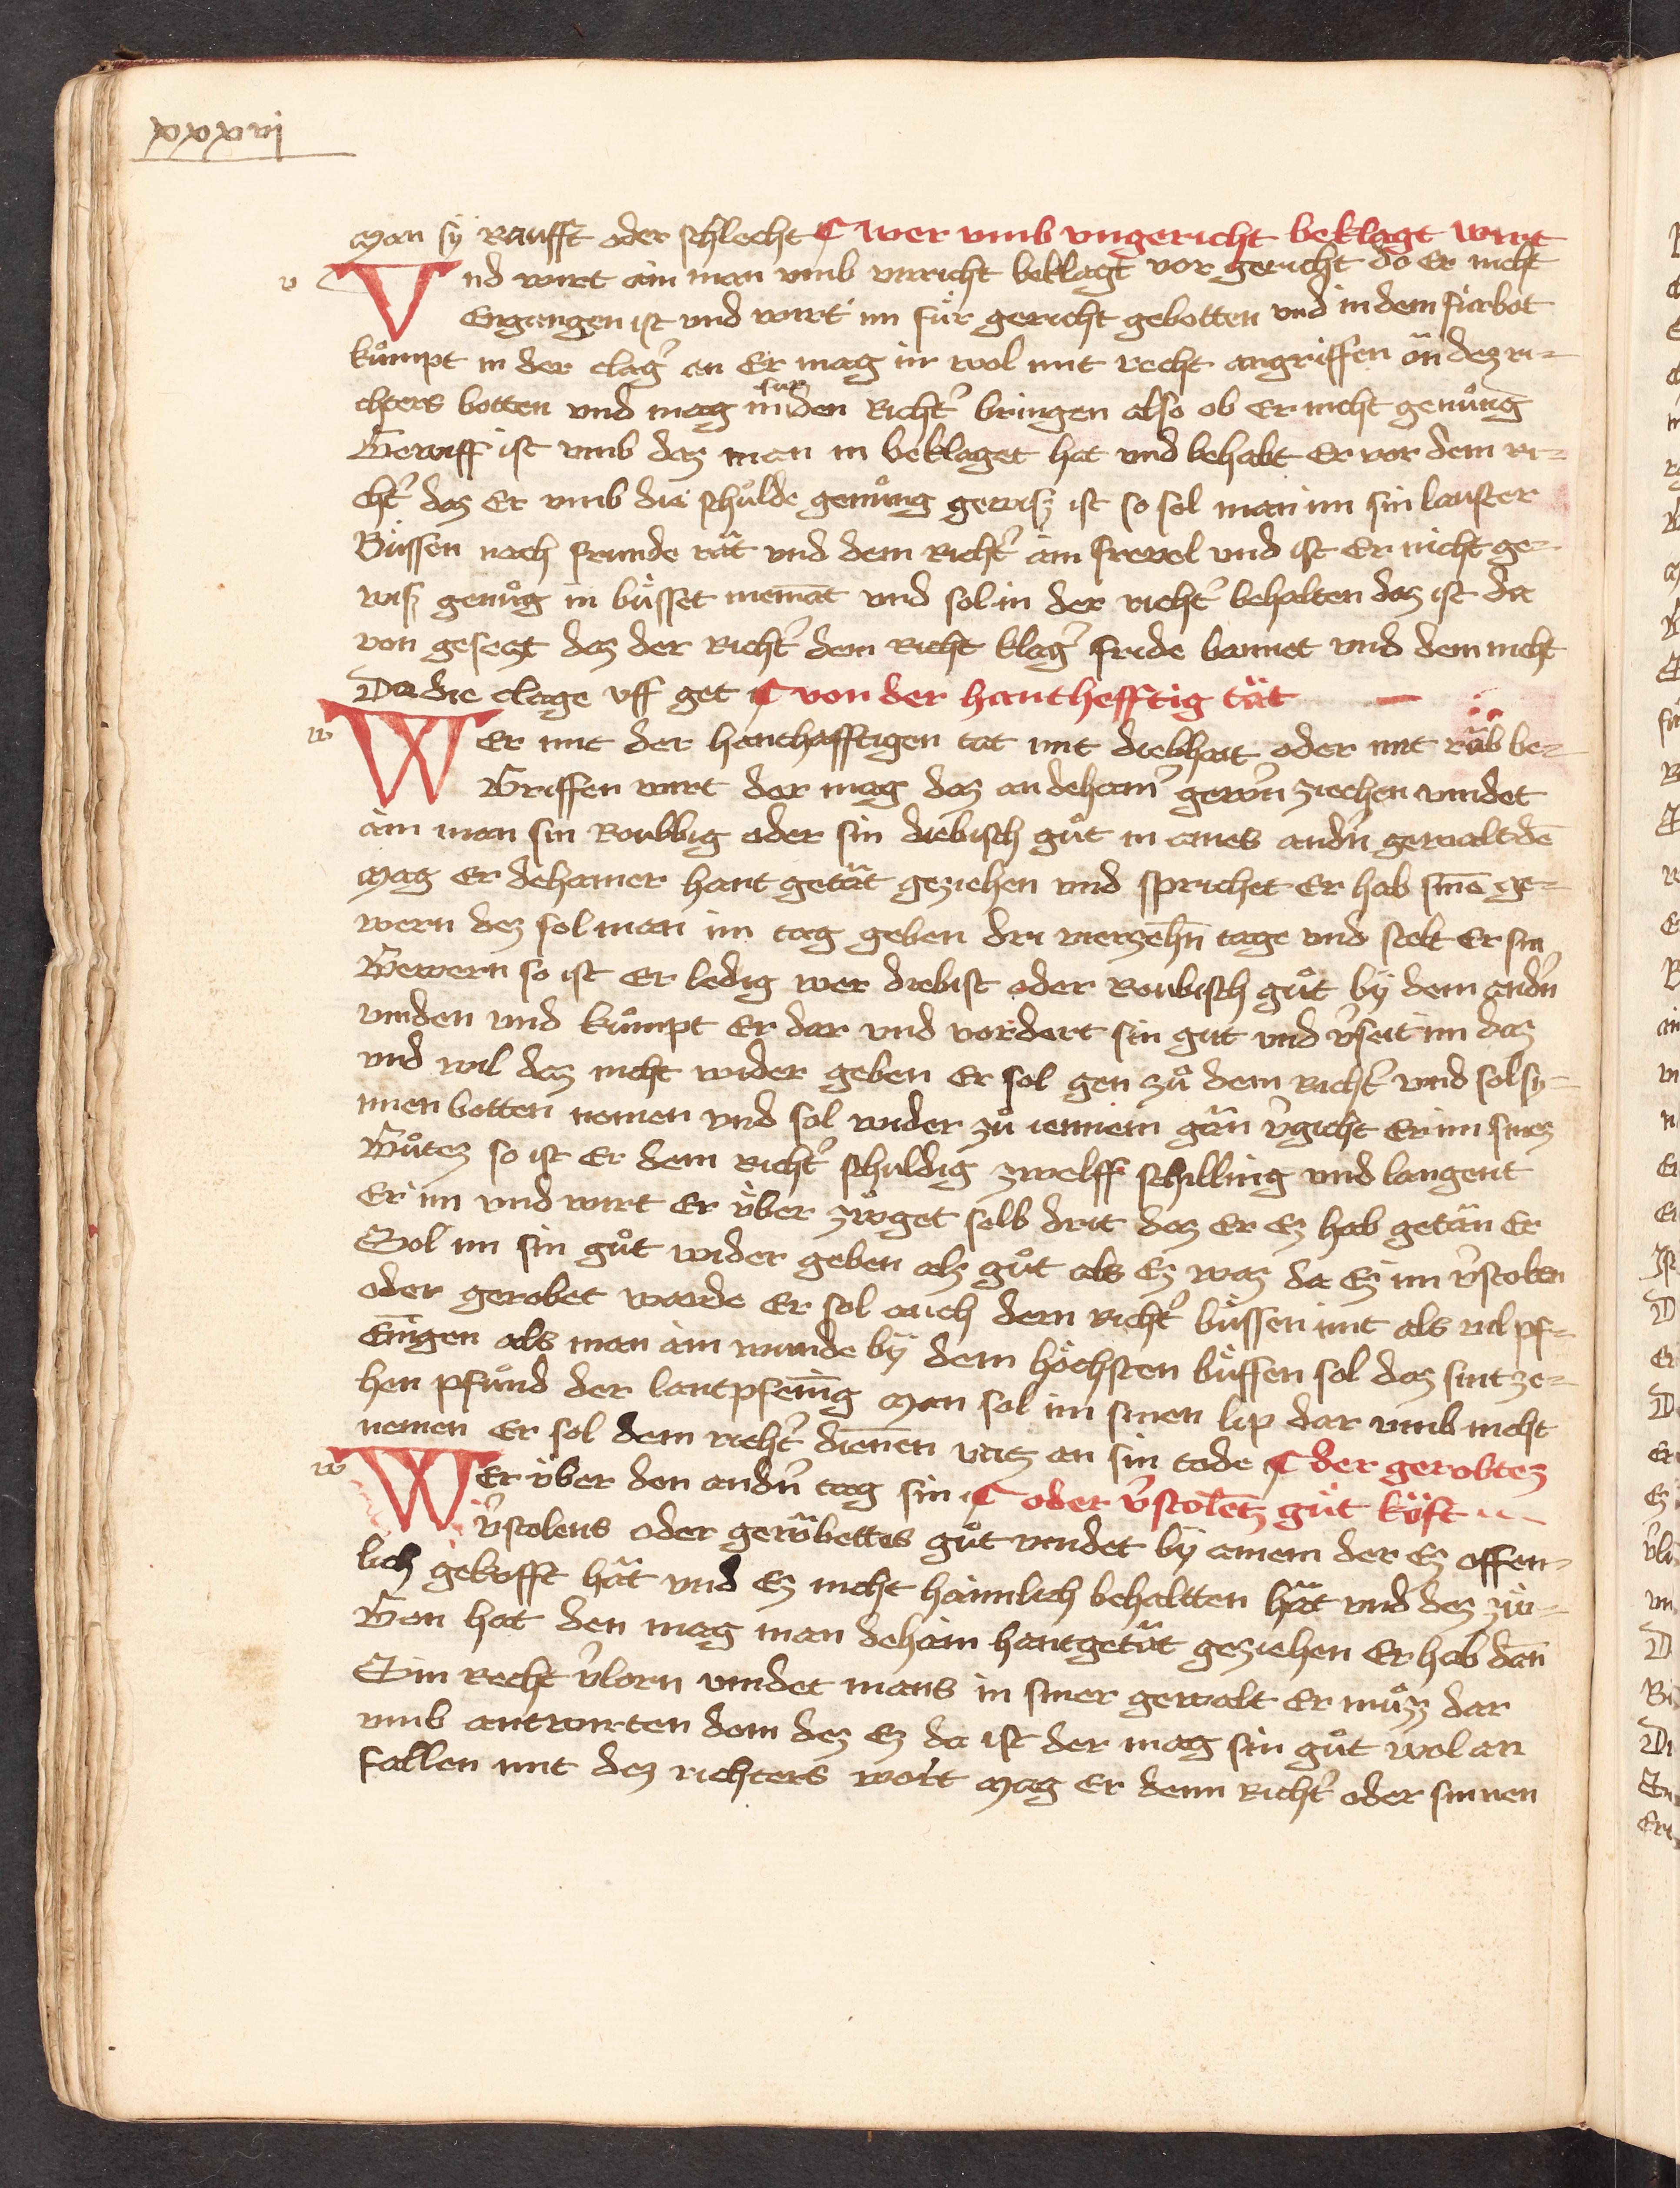 xxxvij
man sÿ raufft oder schlecht ¶ wer vmb vngericht beklagt wirt
v Vnd wirt ain man vmb vnricht beklagt vor gericht do Er nicht
Engangen ist vnd wirt im fúr gericht gebotten vnd in dem fúrbot
kůmpt in der clag̉ an Er mag in wol mit recht angriffen ȧn dez ri-
chters botten vnd mag in fur den Richt̉ bringen also ob Er nicht genůng
Gewiss ist vmb daz man in beklaget hat vnd behabt Er vor dem ri-
cht̉ daz Er vmb die schůlde genůng gewisz ist so sol man im sin laster
Bůssen nach frunde rȧt vnd dem Richt̉ ȧin frevel vnd ist Er nicht ge-
wisz genůg in bůsset niemāt vnd sol in der richt̉ behalten daz ist da
von gesetzt daz der Richt̉ dem Richt klag̉ fride bannet vnd dem nicht
Da die clage vff get ¶ von der hanthefftig tȧt
w WEr mit der hanthafftigen tat mit diebhait oder mit rȧb be-
Griffen wirt der mag daz an dehain̉ gewern̉ ziechen vindet
ȧin man sin Roubbig oder sin diebisch gůt in aines andn̉ gewalt dē
mag Er dehainer hant getȧt geziehen vnd sprichet Er hab sinē ge-
wern dez sol man im tag geben dri vierzehn̄ tage vnd stelt Er sin
Gewern so ist Er ledig wer diebist oder Roubisch gůt bÿ dem andn̉
vinden vnd kůmpt Er dar vnd vordert sin gut vnd v̉seit im daz
vnd wil daz nicht wider geben Er sol gen zů dem richt̉ vnd sol sy-
nnen botten nemen vnd sol wider zů iennem gȧn v̉gicht Er im sines
Gůtez so ist Er dem Richt̉ schuldig zwelff schilling vnd laugent
Er im vnd wirt Er úber zúget selb drit daz Er Ez hab getȧn Er
Sol im sin gůt wider geben alz gůt als Ez waz da Ez im v̉stolen
oder gerobet warde Er sol auch dem richt̉ bůssen mit als vil pf-
Eni̅gen als man ȧin wunde bÿ dem hȯchsten bůssen sol daz sint ze-
hen pfůnd der lantpfeni̅g Man sol im sinen lip dar vmb nicht
nemen Er sol dem richt̉ dienen vntz an sin tode ¶ der gerobtez
w WEr úber den andn̉ tag sin ¶ oder v̉stolētz gůt kȯft
v̉stolens oder gerȯbettes gůt vindet bÿ ainem der Ez offen-
lich gekofft hȧt vnd Ez nicht haimlich behaltten hȧt vnd dez zúi-
Gen hat den mag man dehain hantgetȧt geziehen Er hab dan̄
Sin Recht v̉lorn vindet mans in siner gewalt Er můzz dar
vmb antwurten dem dez Ez da ist der mag sin gůt wol an
fallen mit dez richters wort mag Er denn Richt̉ oder sinnen